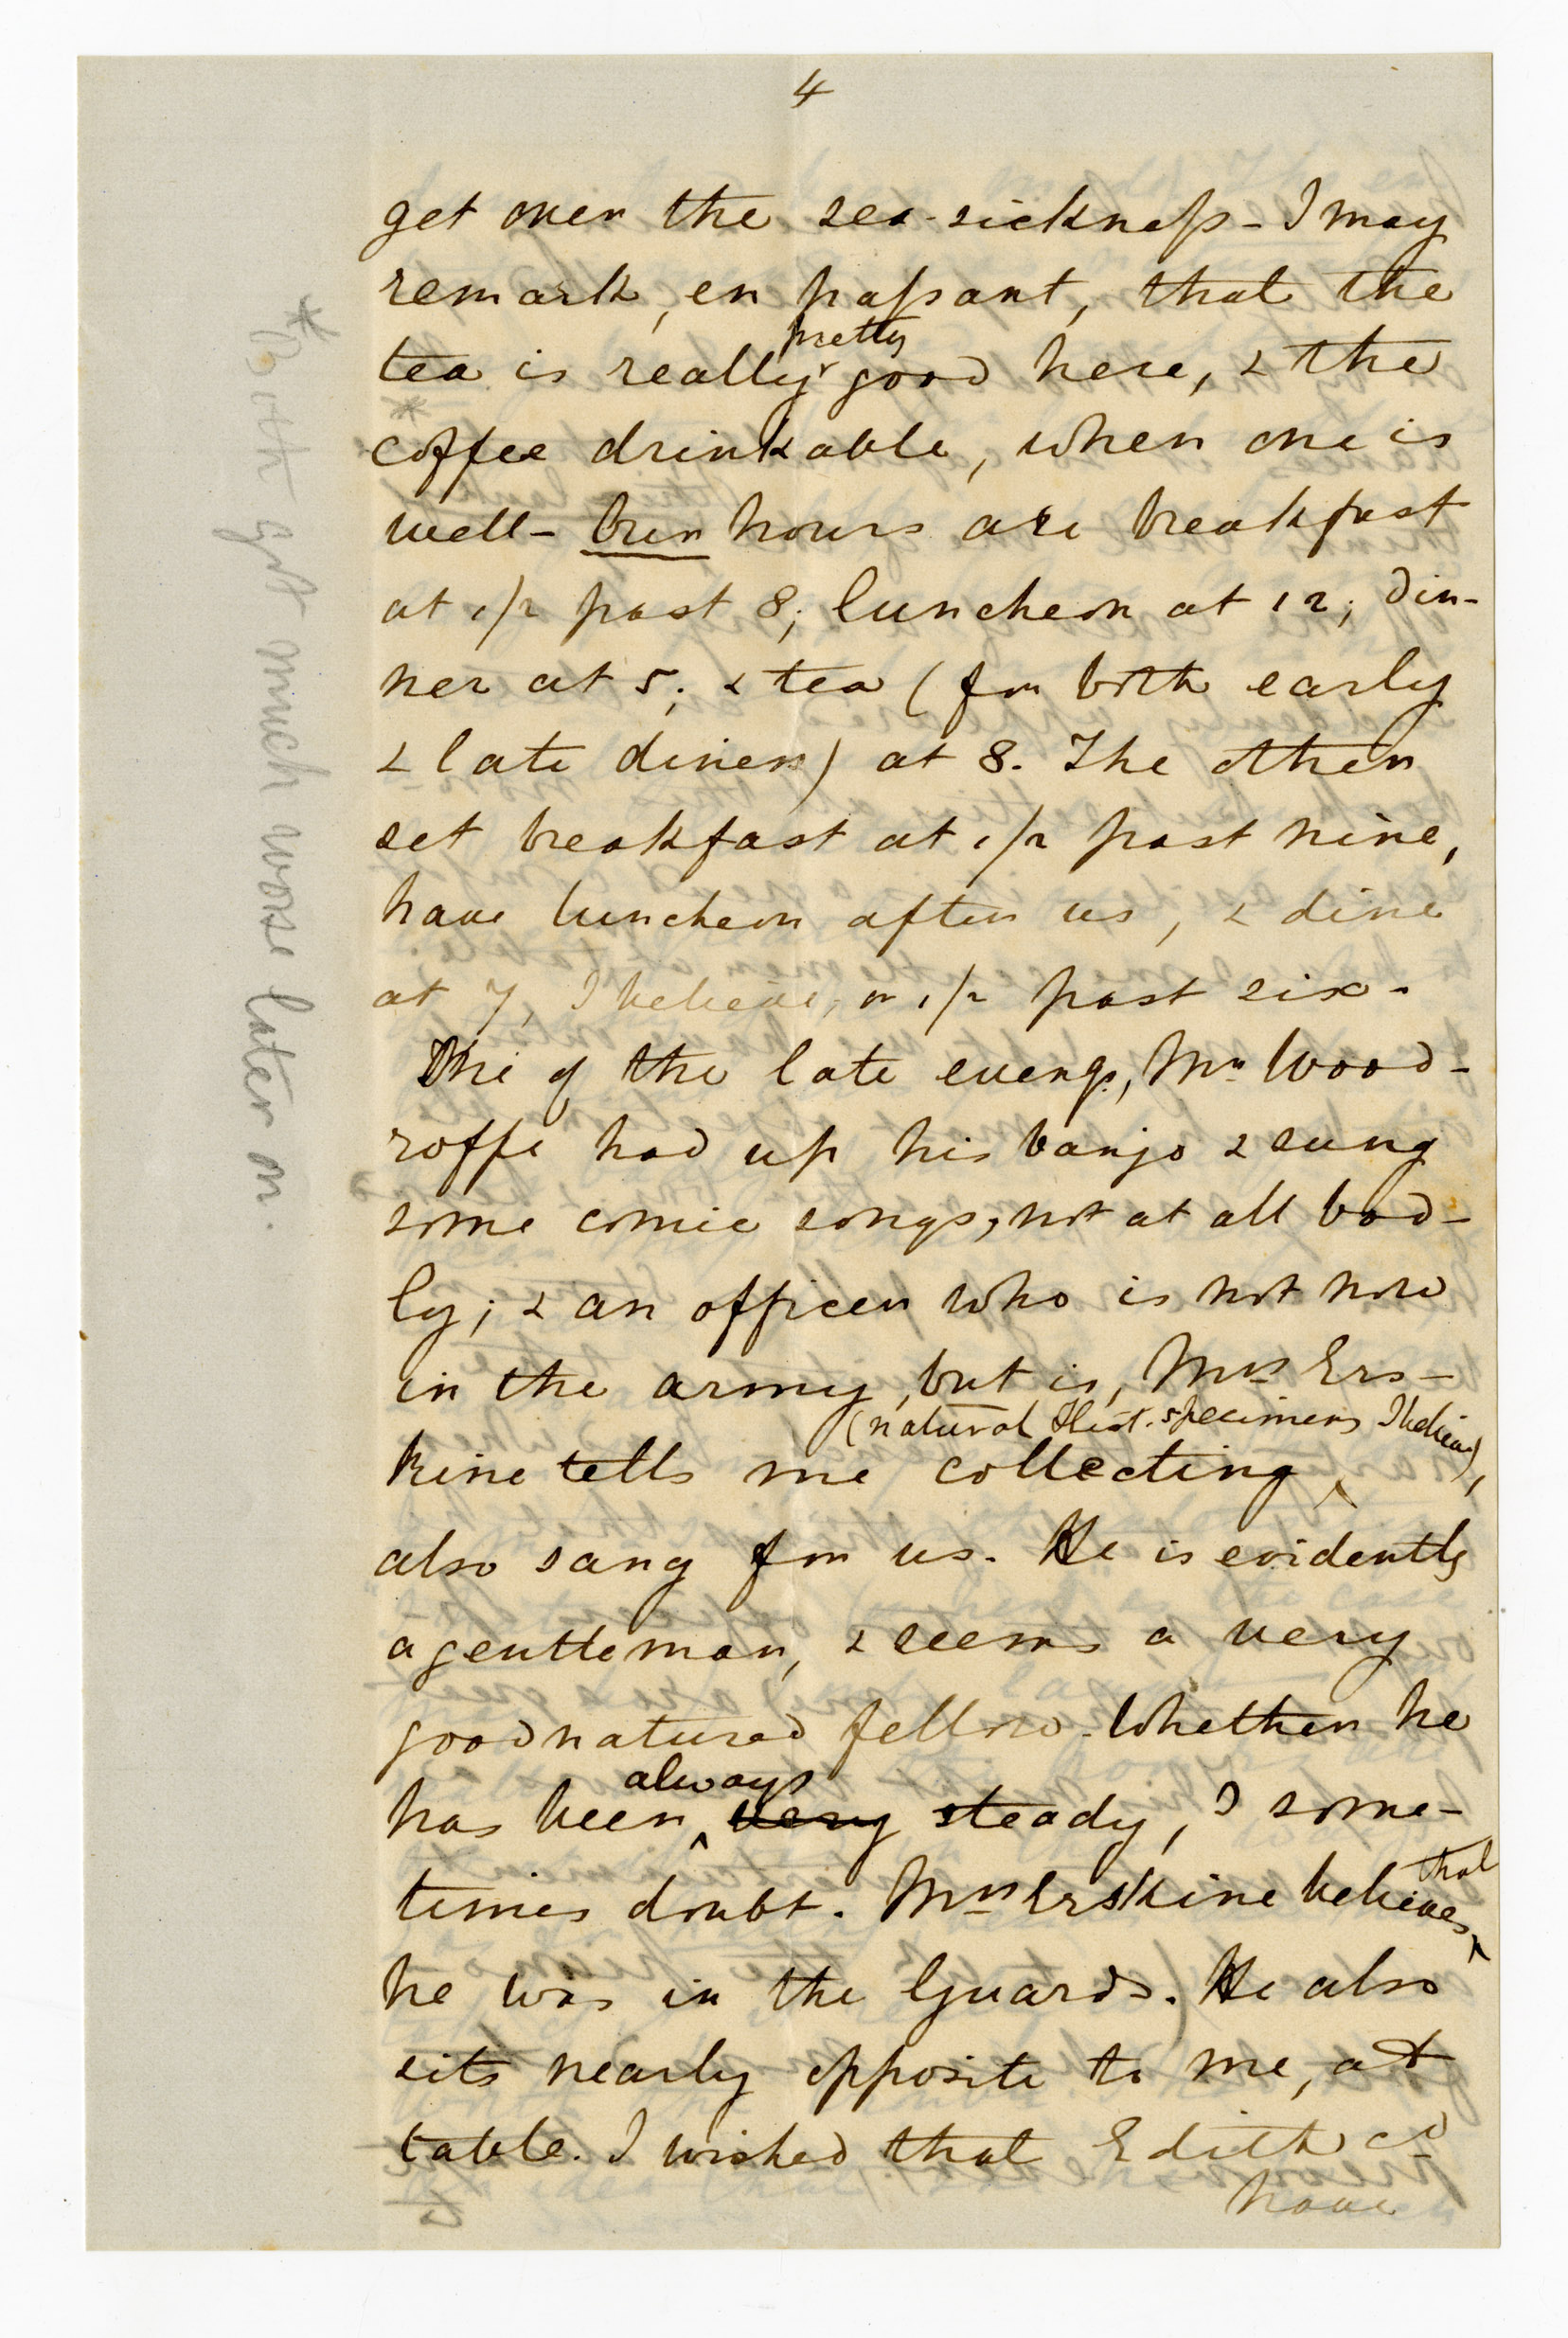 4
get over the sea-sickness - I may
remark, en passant, that the
pretty
tea is really good here, & the
*
coffee drinkable, when one is
well - Our hours are breakfast
at 1/2 past 8; luncheon at 12; din-
ner at 5; & tea (for both early
& late diners) at 8. The other
set breakfast at 1/2 past nine,
have luncheon after us, & dine
at 7, I believe, or 1/2 past six.
One of the late evengs, Mr Wood-
roffe had up his banjo & sung
some comic songs, not at all bad-
ly; & an officer who is not now
in the army, but is, Mrs Ers-
(natural Hist. specimens I believe),
kine tells me collecting ^
also sang for us. He is evidently
a gentleman, & seems a very
goodnatured fellow. Whether he
always
has been ^ very steady, I some-
that
times doubt. Mrs Erskine believes ^
he was in the Guards. He also
sits nearly opposite to me, at
table. I wished that Edith cd
have
* Both got much worse later on.